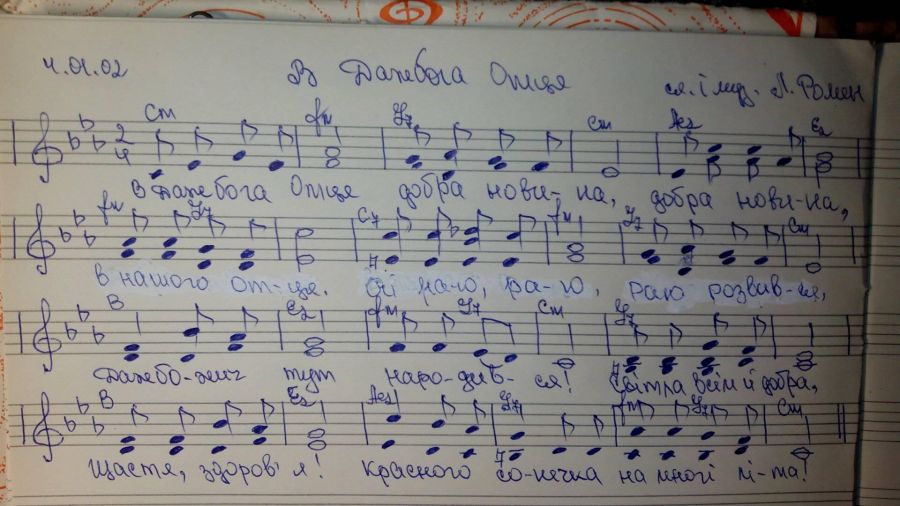 4.01.02 В Дажбога Отця сл. і муз. Л. Ромен
Cm fm G7 Cm As2 Es
В Дажбога Отце добра нови-на, добра нови-на,
fm G7 C7 fm G7 Cm
в нашого от-це. раю, ра-ю, раю розвив-ся,
B Es fm G7 Cm G7
Дажбо-жич тут наро-див-ся! Світла всім й добра,
B Es As G7 fm G7 Cm
Щастя, здоров'я! красного со-нечка на многі лі-та!